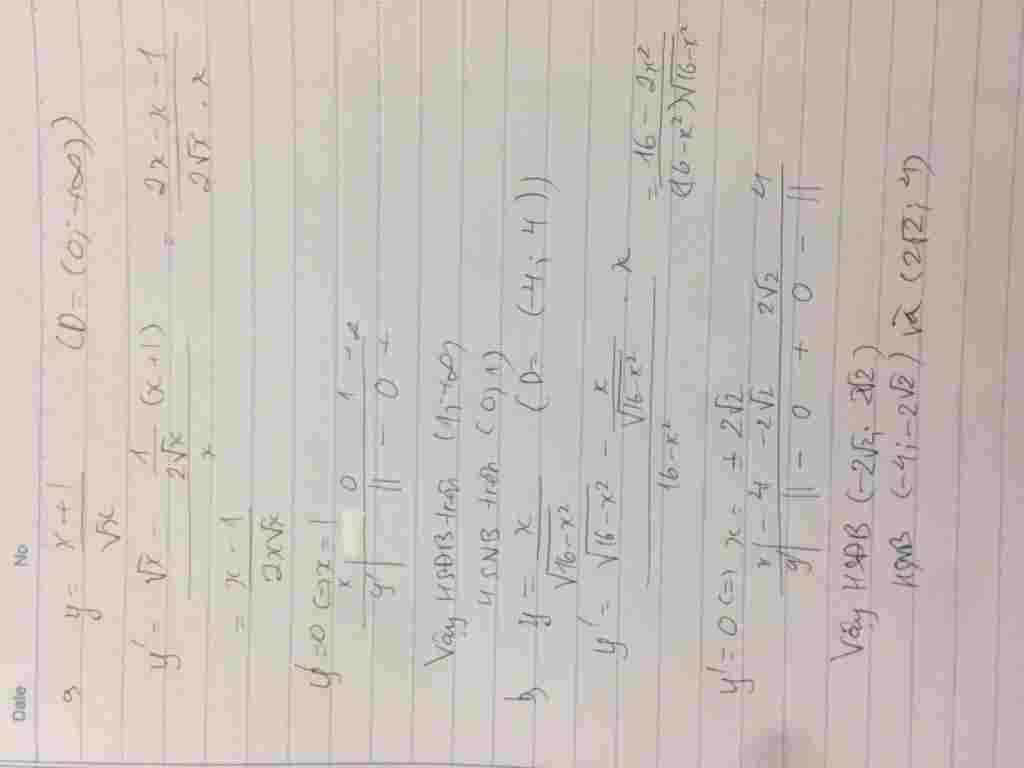 Date No
a, y = x+1/√x (D = (0; +∞))
y' = (√x - 1/2√x (x+1))/x = (2x-x-1)/(2√x . x)
= (x-1)/(2x√x)
y' = 0 (=) x = 1
x 0 1 +∞
y' || - 0 +
Vậy HSĐB trên (1; +∞)
HSNB trên (0; 1)
b, y = x/√16-x² (D = (-4; 4))
y' = (√16-x² - x/√16-x² . x)/(16-x²) = (16-2x²)/((16-x²)√16-x²)
y' = 0 (=) x = ± 2√2
x -4 -2√2 2√2 4
y' || - 0 + 0 - ||
Vậy HSĐB (-2√2; 2√2)
HSNB (-4; -2√2) và (2√2; 4)